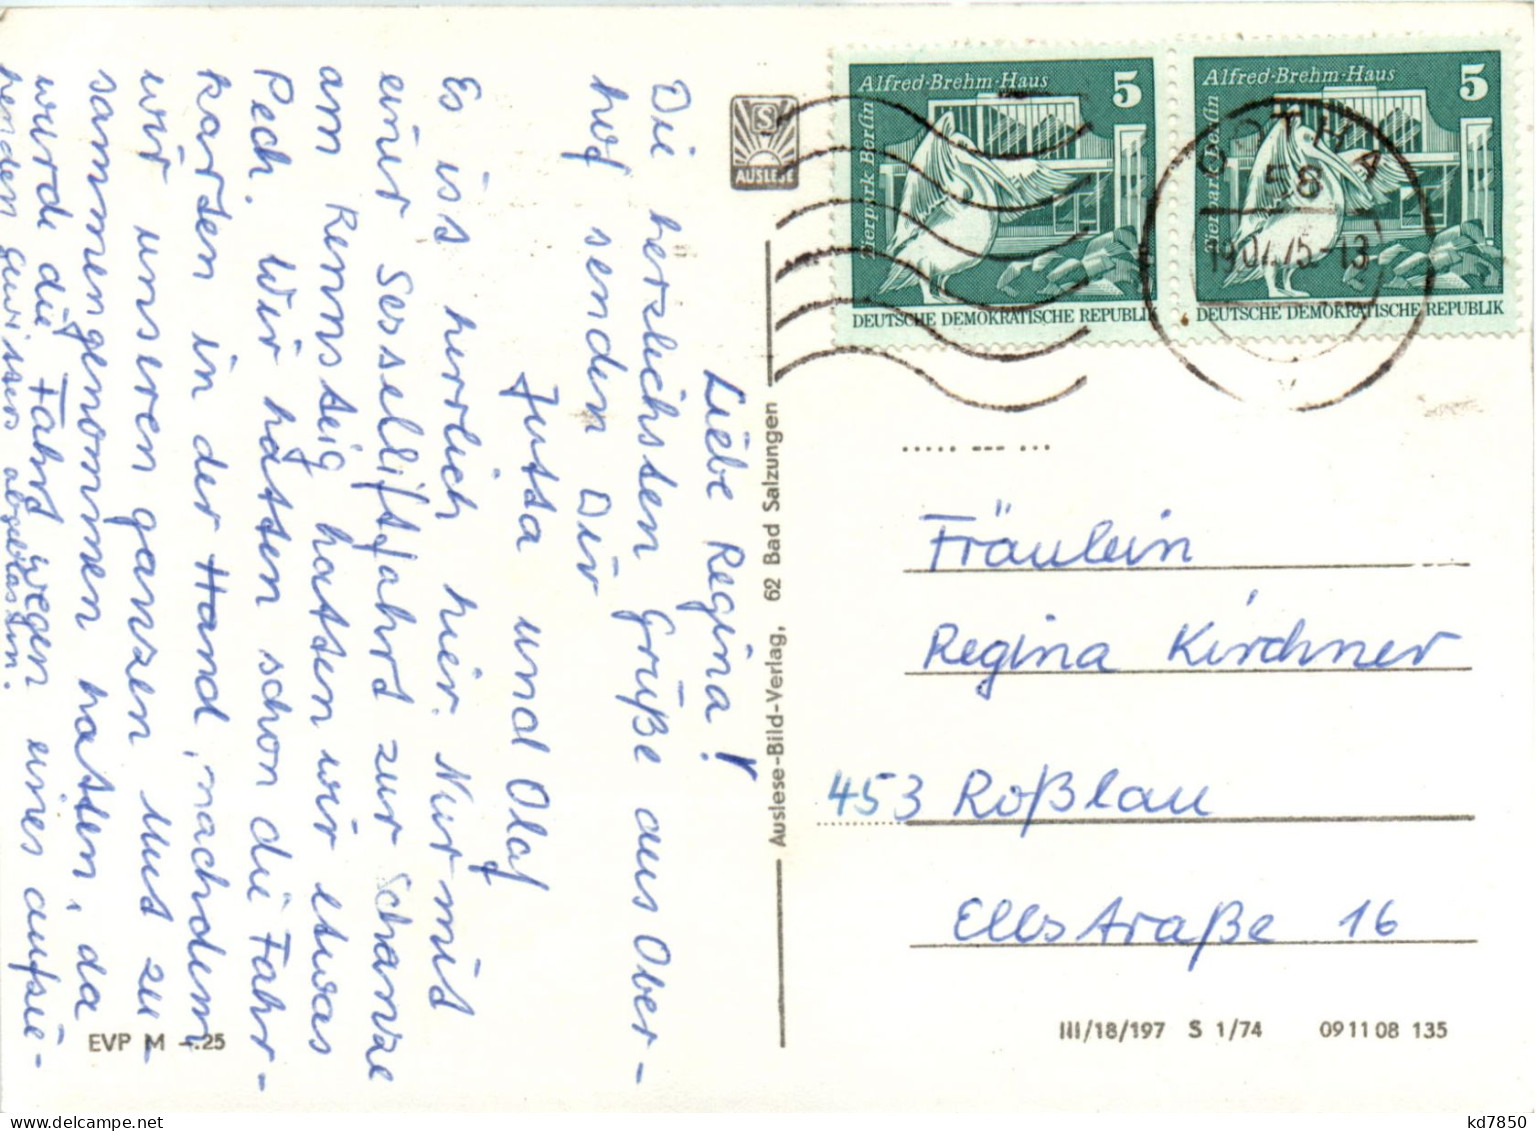 Liebe Regina!
Die herzlichsten Grüße aus Ober-
hof senden Dir
Jutta und Olaf
Es ist herrlich hier. Nur mit
einer Sesselliftfahrt zur Schanze
am Rennsteig hatten wir etwas
Pech. Wir hatten schon die Fahr-
karten in der Hand, nachdem
wir unseren ganzen Mut zu-
sammengenommen hatten, da
wurde die Fahrt wegen eines aufzie-
henden Gewitters abgeblasen.
S
AUSLESE
Auslese-Bild-Verlag, 62 Bad Salzungen
Alfred-Brehm-Haus 5
Tierpark Berlin
DEUTSCHE DEMOKRATISCHE REPUBLIK
Alfred-Brehm-Haus 5
Tierpark Berlin
DEUTSCHE DEMOKRATISCHE REPUBLIK
GOTHA
58
19.07.75-13
Fräulein
Regina Kirchner
453 Roßlau
Elbstraße 16
EVP M -.25
III/18/197 S 1/74 09 11 08 135
kd7850